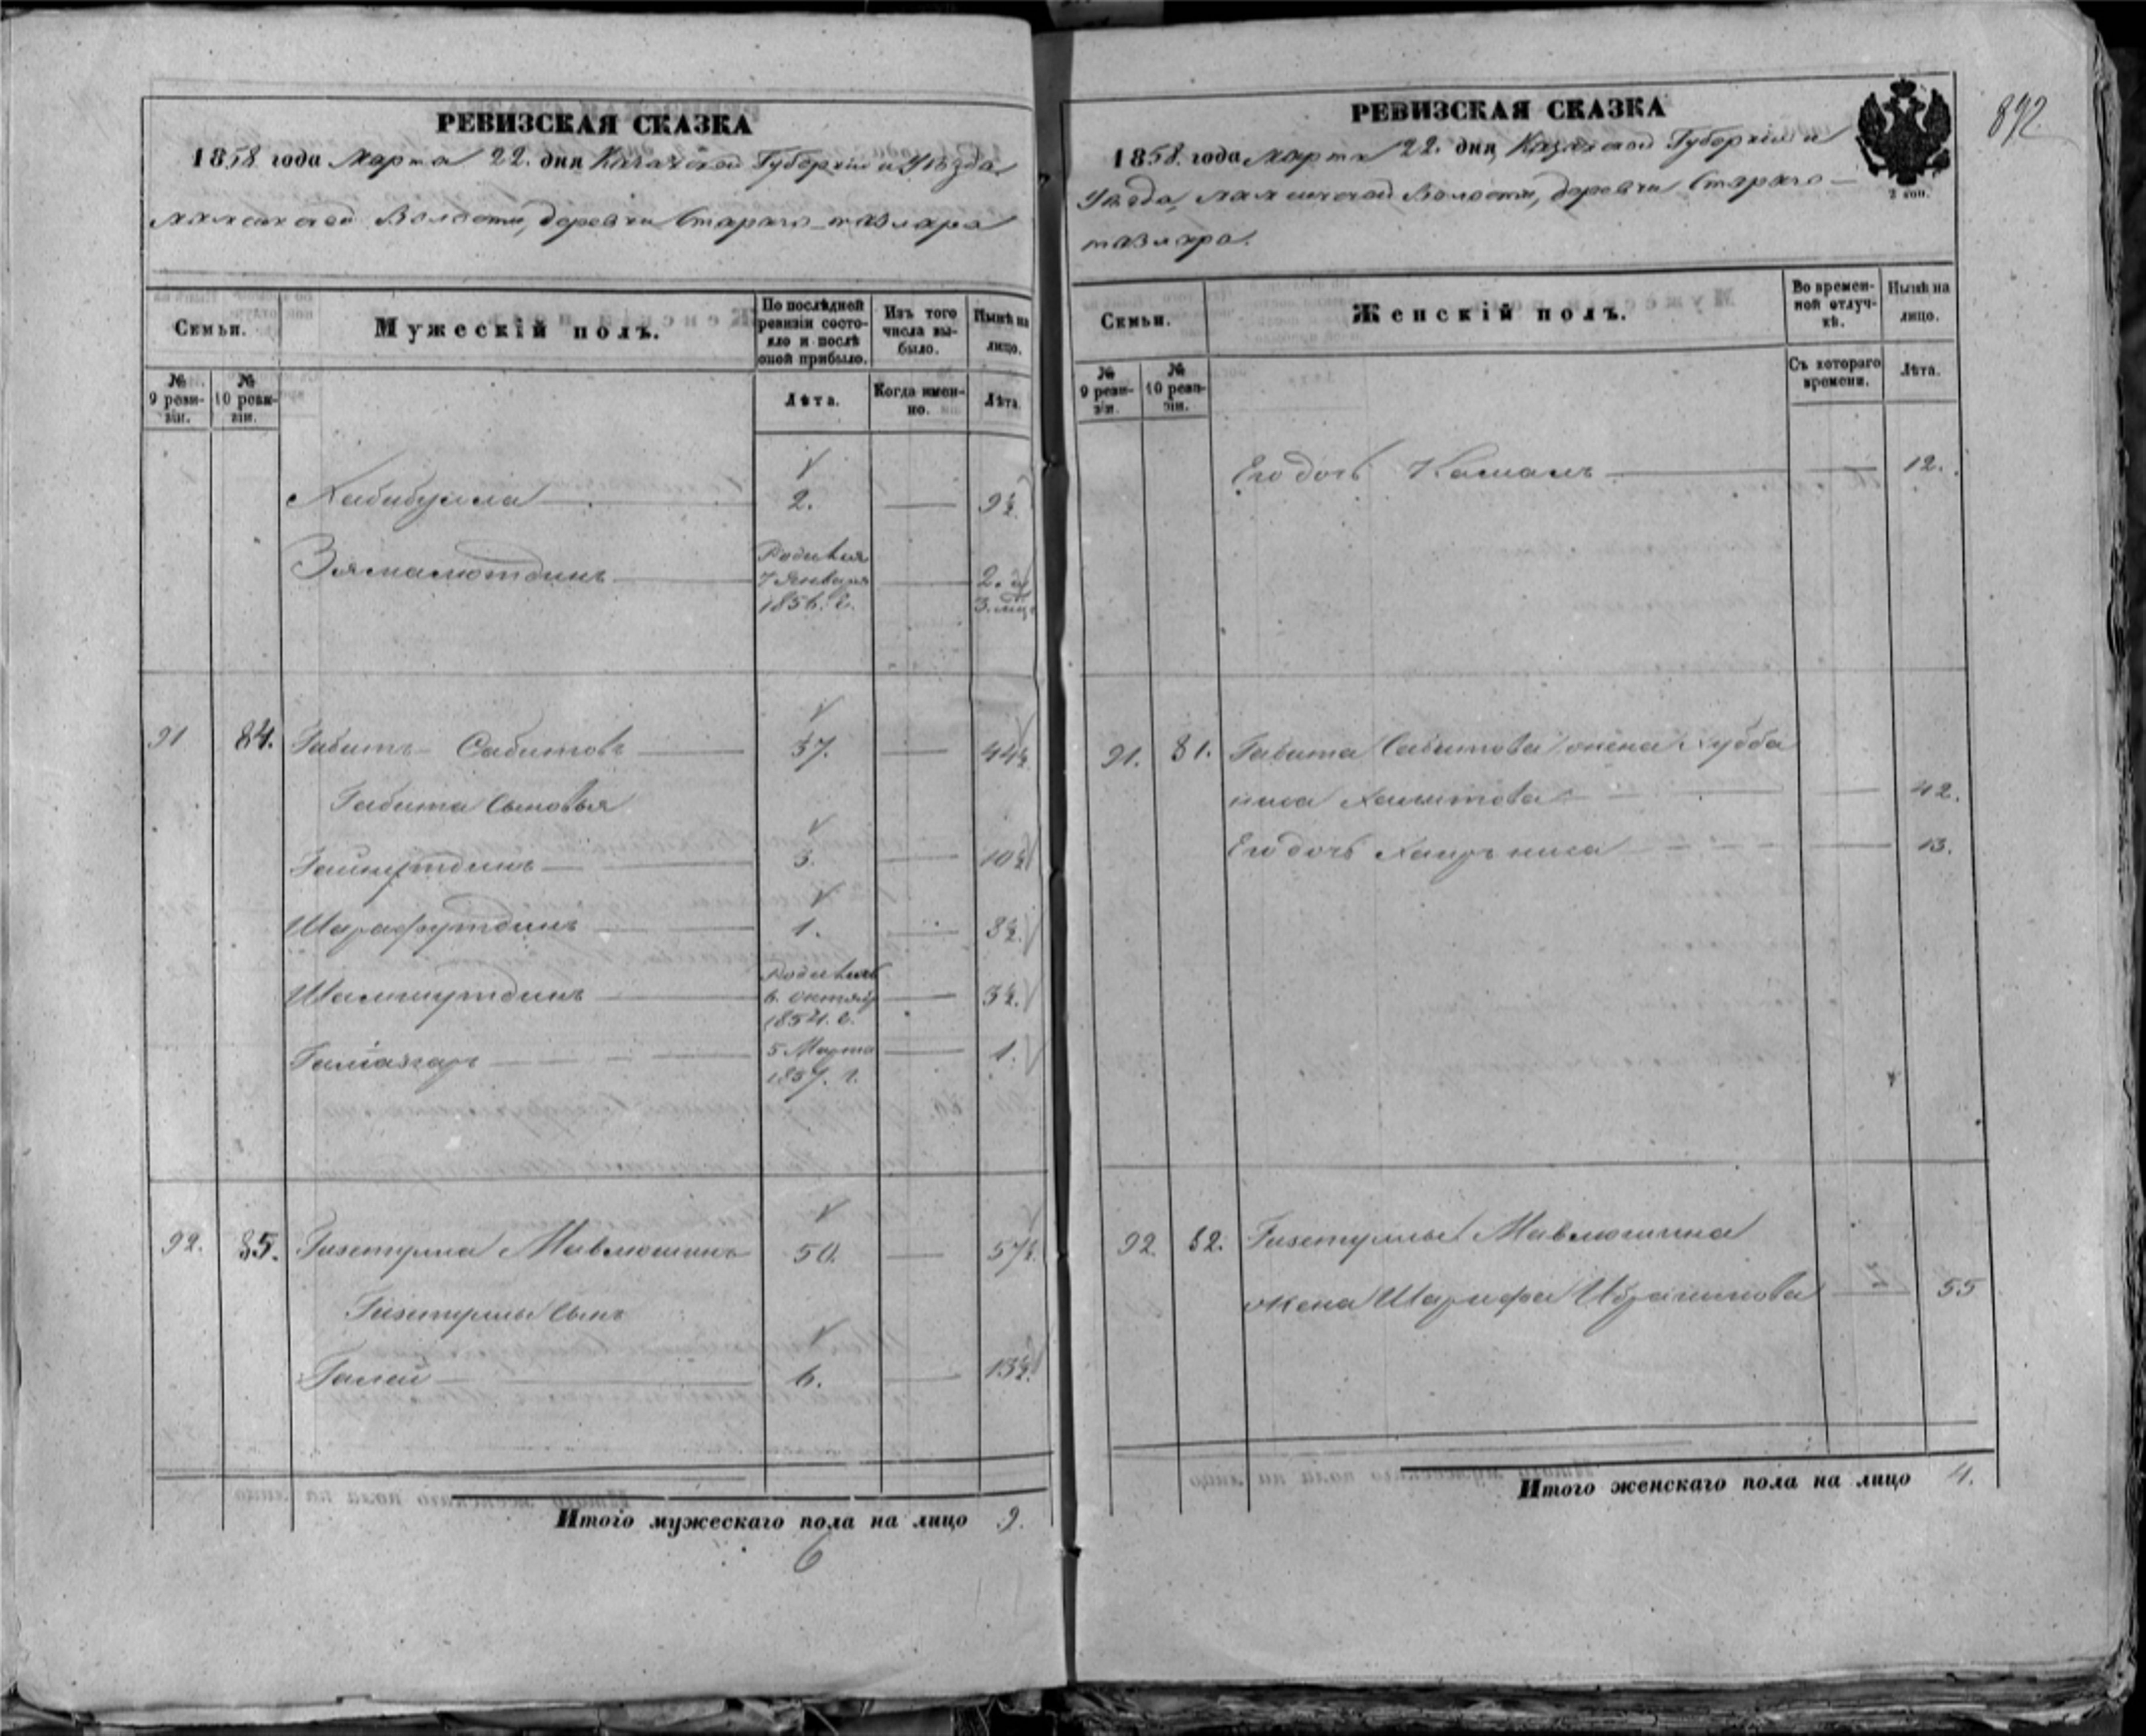 РЕВИЗСКАЯ СКАЗКА
1858 года Марта 22. дня Казанской Губерніи и Уѣзда,
Волости, деревни Стараго
Семьи.
Мужескій полъ.
По послѣдней ревизіи состояло и послѣ оной прибыло.
Изъ того числа выбыло.
Нынѣ на лицо.
№ 9 ревизіи.
№ 10 ревизіи.
Лѣта.
Когда именно.
Лѣта.
Хабибулла 2. 9½
Родился 7 Января 1856. г. 2. и 3. мѣц.
91 84. Габитъ Сабитовъ 37. 44½
Габита Сыновья
Гайнутдинъ 3. 10½
Шарафутдинъ 1. 8½.
Шамшутдинъ Родился 6. Октяб 1854. г. 3½.
5 Марта 1857. г. 1.
92. 85. Гизетулла Мавлюшинъ 50. 57½.
Гизетуллы Сынъ
Галей 6. 13½.
Итого мужескаго пола на лицо 9.
6
РЕВИЗСКАЯ СКАЗКА
1858. года Марта 22. дня Казанской Губерніи и
Уѣзда, Волости, деревни Стараго
2 коп.
Семьи.
Женскій полъ.
Во временной отлучкѣ.
Нынѣ на лицо.
№ 9 ревизіи.
№ 10 ревизіи.
Съ котораго времени.
Лѣта.
Его дочь 12.
91. 81. Габита Сабитова жена Хубба
ниса 42.
Его дочь 13.
92 82. Гизетуллы Мавлюшина
жена Шарифа Ибрагимова 55
Итого женскаго пола на лицо 4.